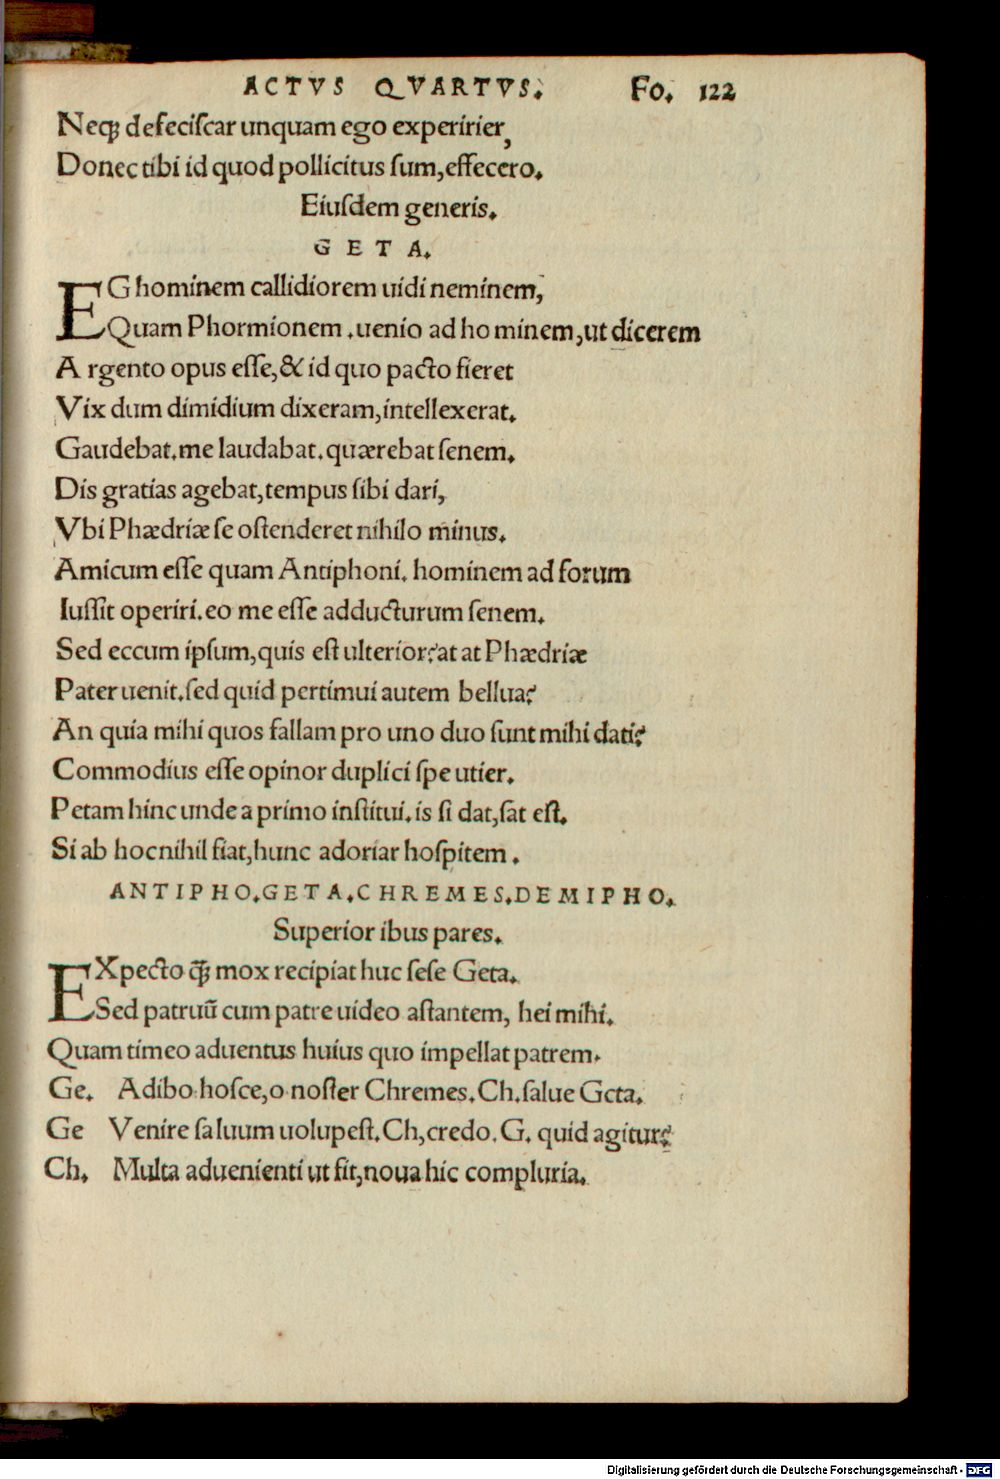 ACTVS QVARTVS. Fo. 122
Neqꝫ defeciſcar unquam ego experirier,
Donec tibi id quod pollicitus ſum,effecero.
Eiuſdem generis.
G E T A.
EG hominem callidiorem uidi neminem,
Quam Phormionem .uenio ad ho minem,ut dicerem
A rgento opus eſſe,& id quo pacto fieret
Vix dum dimidium dixeram,intellexerat.
Gaudebat.me laudabat.quærebat ſenem.
Dis gratias agebat,tempus ſibi dari,
Vbi Phædriæ ſe oſtenderet nihilo minus.
Amicum eſſe quam Antiphoni. hominem ad forum
Iuſſit operiri.eo me eſſe adducturum ſenem.
Sed eccum ipſum,quis eſt ulterior?at at Phædriæ
Pater uenit.ſed quid pertimui autem bellua?
An quia mihi quos fallam pro uno duo ſunt mihi dati?
Commodius eſſe opinor duplici ſpe utier.
Petam hinc unde a primo inſtitui.is ſi dat,ſat eſt.
Si ab hocnihil fiat,hunc adoriar hoſpitem .
ANTIPHO.GETA.CHREMES.DEMIPHO.
Superior ibus pares.
EXpecto q̄ꝫ mox recipiat huc ſeſe Geta.
Sed patruū cum patre uideo aſtantem, hei mihi.
Quam timeo aduentus huius quo impellat patrem.
Ge. Adibo hoſce,o noſter Chremes.Ch.ſalue Geta.
Ge Venire ſaluum uolupeſt.Ch,credo.G. quid agitur?
Ch. Multa aduenienti ut fit,noua hic compluria.
Digitalisierung gefördert durch die Deutsche Forschungsgemeinschaft - DFG